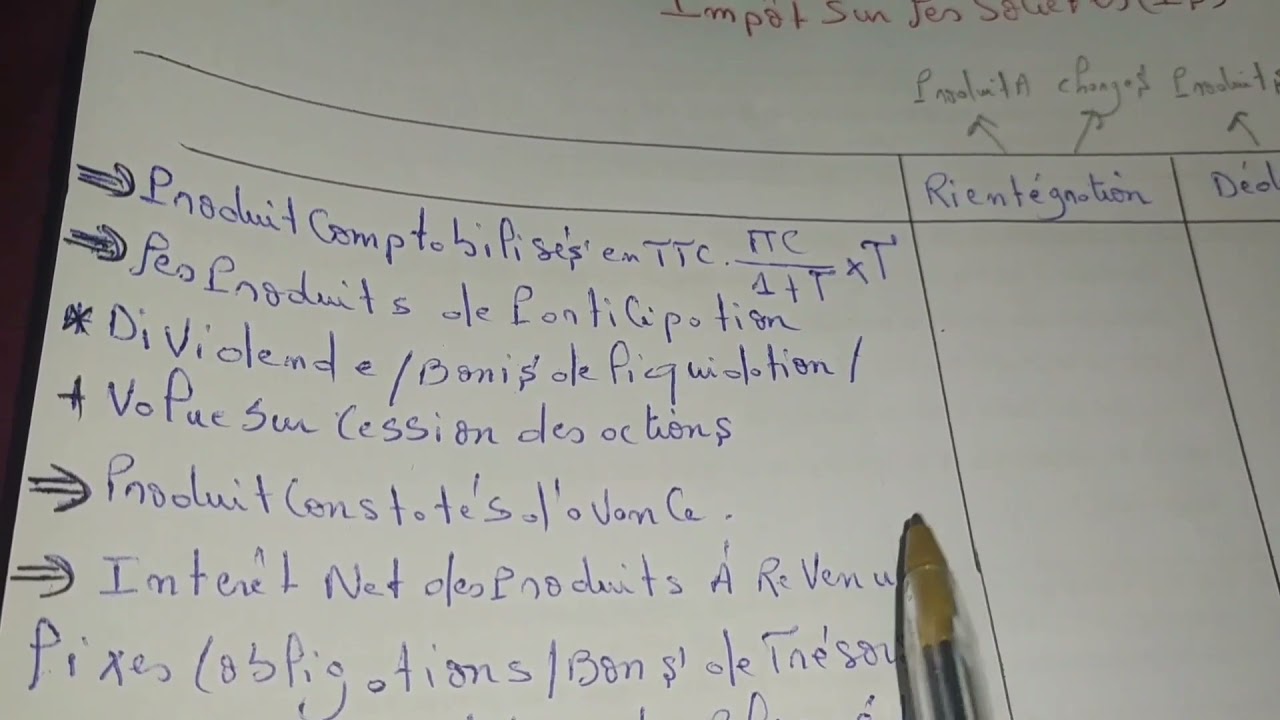 Impôt Sur les Sociétés (IS)
Produit A charges Produit
Rientégration Déd
⇒ Produit Comptabilisés en TTC. TTC/1+T ×T
⇒ les Produits de Participation
* Dividende / Bonis de licquidation /
+ Value Sur Cession des actions
⇒ Produit Constatés d'avance.
⇒ Interêt Net des Produits À Revenu
fixes (obligations / Bons de Trésor